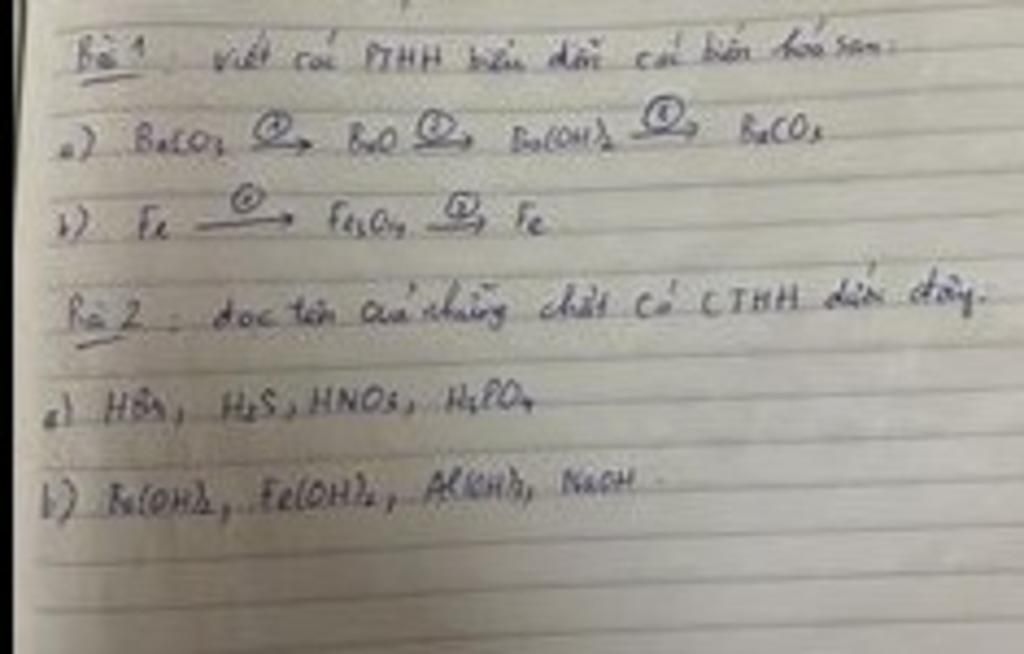 Bài 1 : viết các PTHH biểu diễn các biến hóa sau:
a) BaCO₃ ①→ BaO ②→ Ba(OH)₂ → BaCO₃
b) Fe ①→ Fe₃O₄ ②→ Fe
Bài 2 : đọc tên của những chất có CTHH dưới đây.
a) HBr, H₂S, HNO₃, H₃PO₄
b) Ba(OH)₂, Fe(OH)₂, Al(OH)₃, NaOH